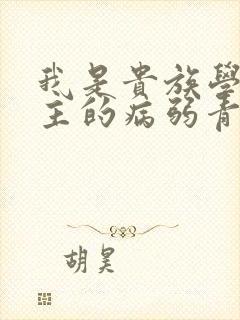 我是貴族學
主的病弱青
胡昊